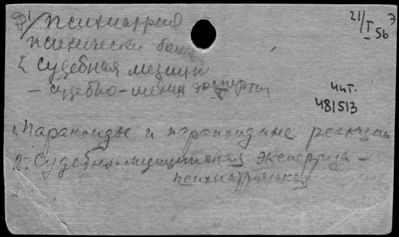 1 Психиатрия
21/I 56
психически боль
2 Судебная медицин
– судебно-мед экспертиза
Чит.
481513
1. Параноиды и параноидные реакции
2. Судебно-медицинская экспертиза –
психиатрическая